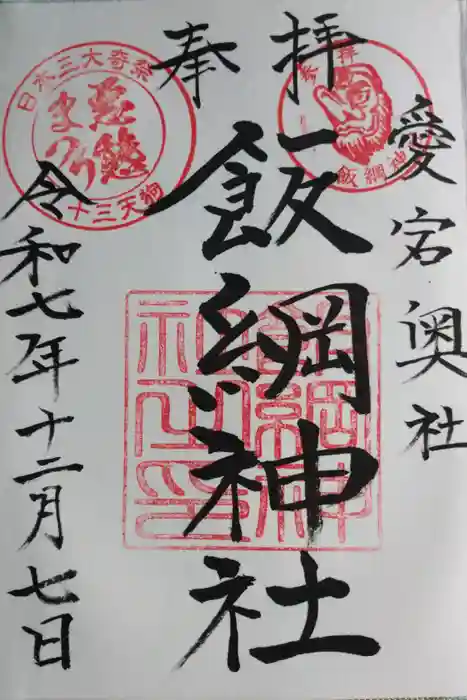 愛宕奥社
奉拝
飯綱神社
令和七年十二月七日
日本三大奇祭
悪態
まつり
十三天狗
奉拝
飯綱神